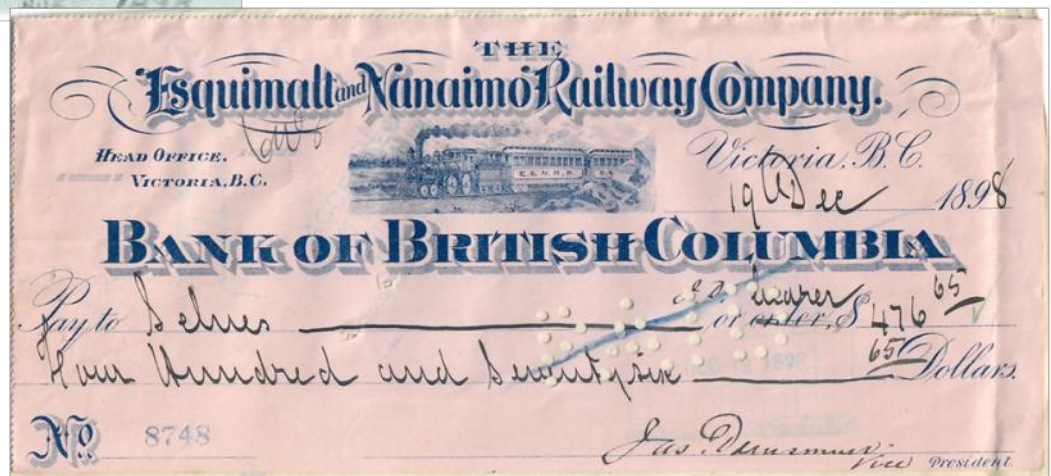 THE
Esquimalt and Nanaimo Railway Company.
HEAD OFFICE.
VICTORIA, B.C.
Victoria, B.C.
19 Dec 1898
E. & N. R. R.
BANK OF BRITISH COLUMBIA
Pay to Selves or order bearer $ 476 65
Four Hundred and Seventy six 65 Dollars.
No 8748
Jas Dunsmuir
Vice President.